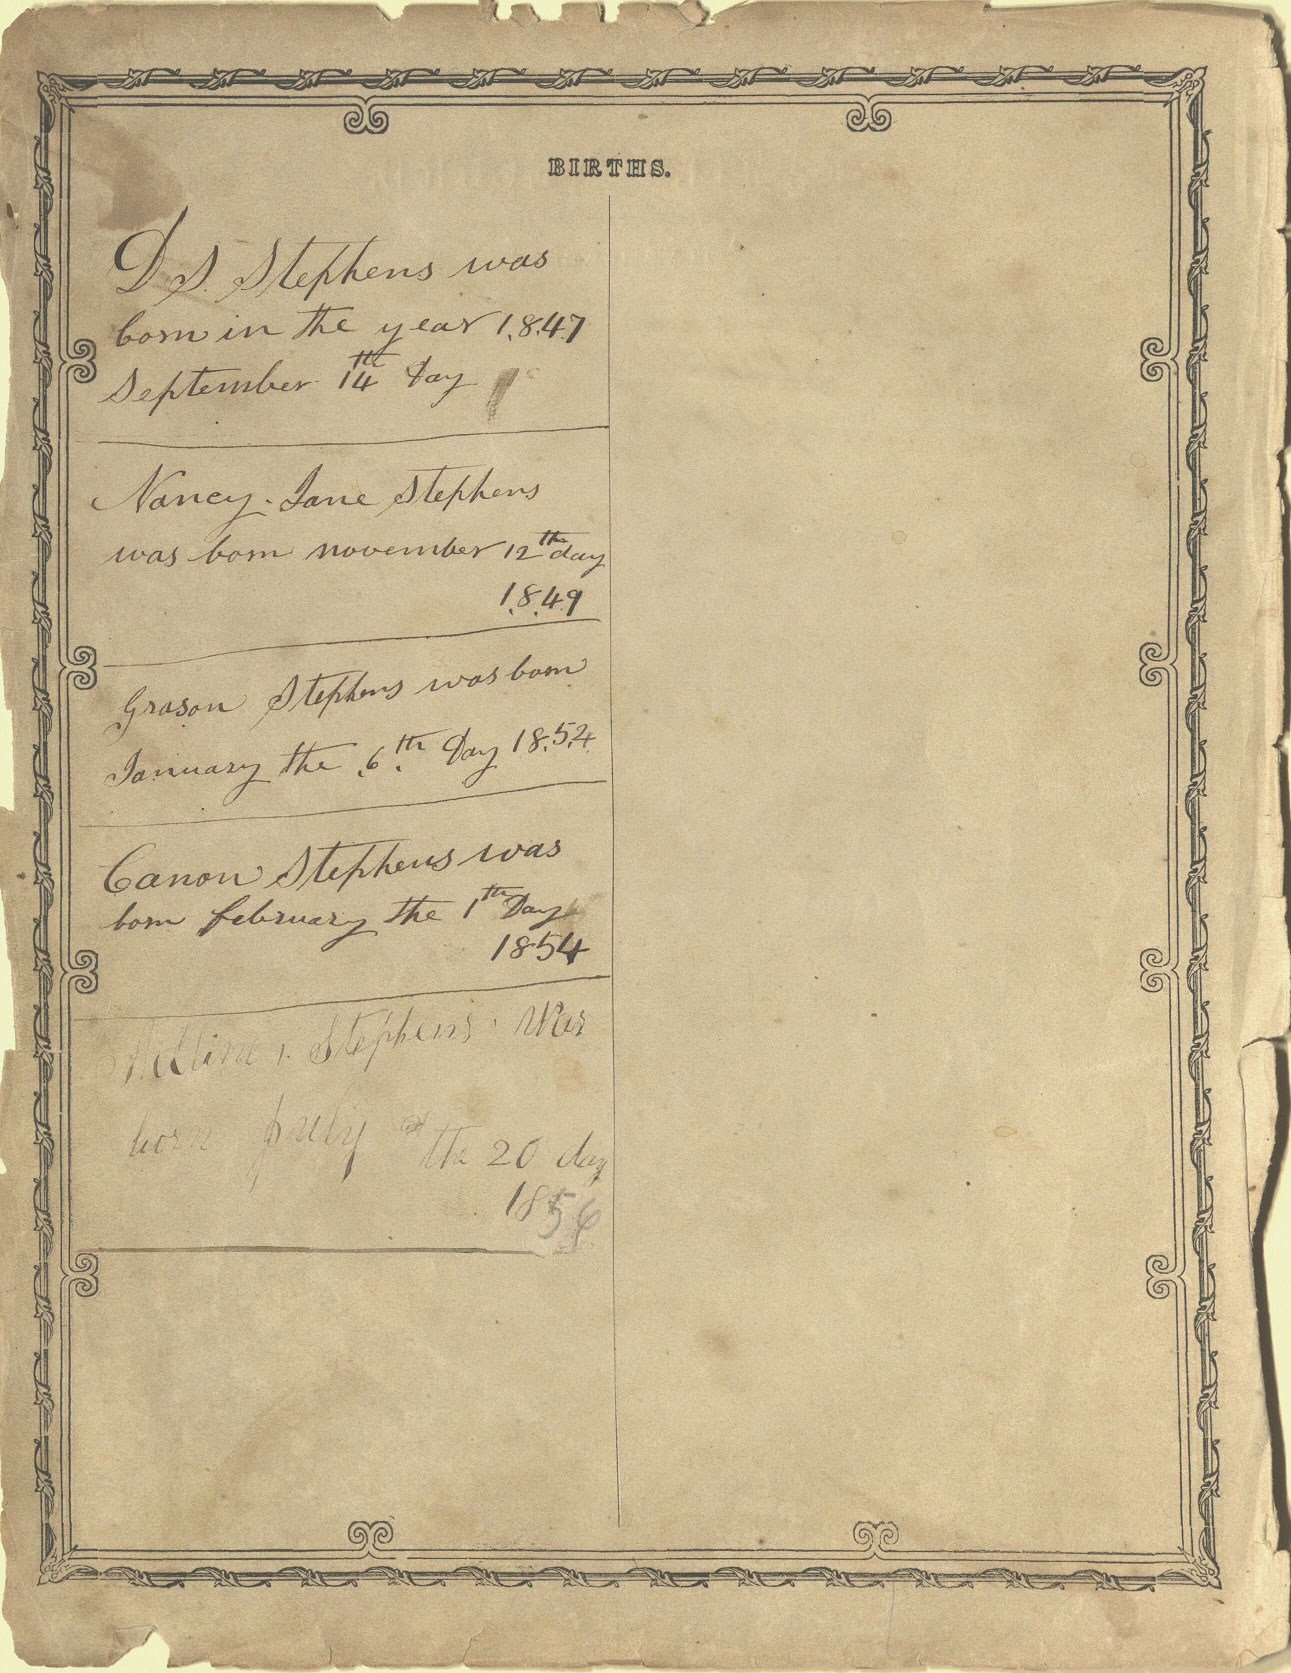 BIRTHS.
D S. Stephens was
born in the year 1.8.47
September 14th Day
Nancy. Jane Stephens
was born november 12th day
1.8.49
Grason Stephens was born
January the .6.th Day 18.52
Canon Stephens was
born february the 1th Day
1854
Stephens Was
born july the 20 day
185